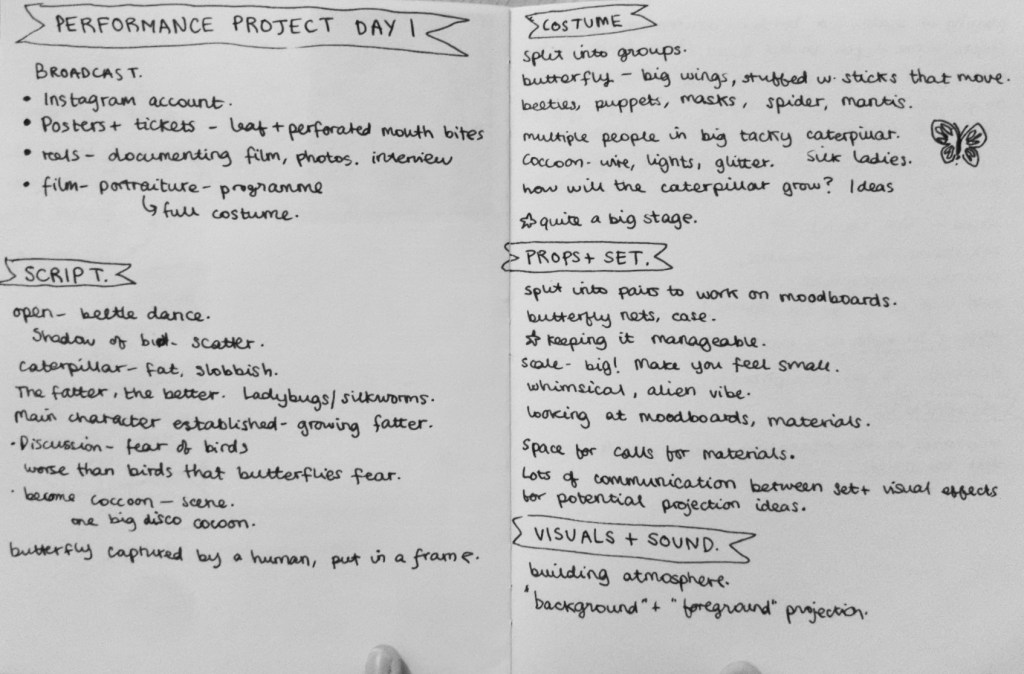 PERFORMANCE PROJECT DAY 1
BROADCAST.
• Instagram account.
• Posters + tickets - leaf + perforated mouth bites
• reels - documenting film, photos. interview
• film - portraiture - programme
↳ full costume.
SCRIPT.
open - beetle dance.
Shadow of bird - scatter.
caterpillar - fat, slobbish.
The fatter, the better. Ladybugs/silkworms.
Main character established - growing fatter.
· Discussion - fear of birds
worse than birds that butterflies fear.
· become coccoon - scene.
one big disco cocoon.
butterfly captured by a human, put in a frame.
COSTUME
split into groups.
butterfly - big wings, stuffed w. sticks that move.
beetles, puppets, masks, spider, mantis.
multiple people in big tacky caterpillar.
coccoon - wire, lights, glitter. Silk ladies.
how will the caterpillar grow? Ideas
☆ quite a big stage.
PROPS + SET.
split into pairs to work on moodboards.
butterfly nets, case.
☆ keeping it manageable.
scale - big! Make you feel small.
whimsical, alien vibe.
looking at moodboards, materials.
space for calls for materials.
Lots of communication between set + visual effects
for potential projection ideas.
VISUALS + SOUND.
building atmosphere.
"background" + "foreground" projection.